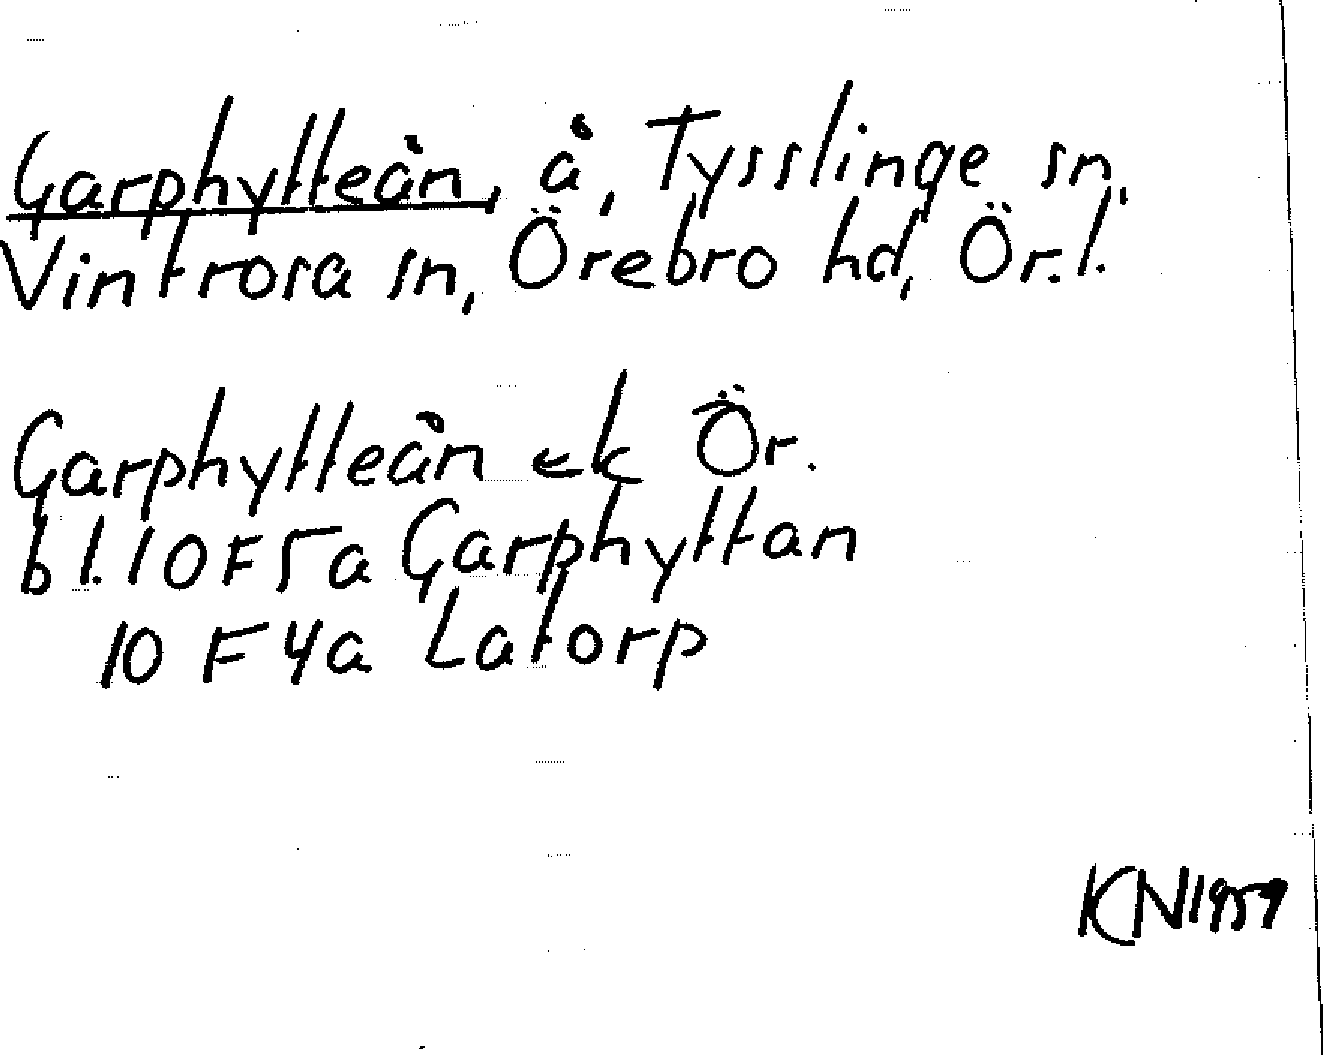 Garphytteån, å, Tysslinge sn,
Vintrosa sn, Örebro hd, Ör.l.
Garphytteån ek Ör.
bl. 10 F 5a Garphyttan
10 F 4a Latorp
KN 1959